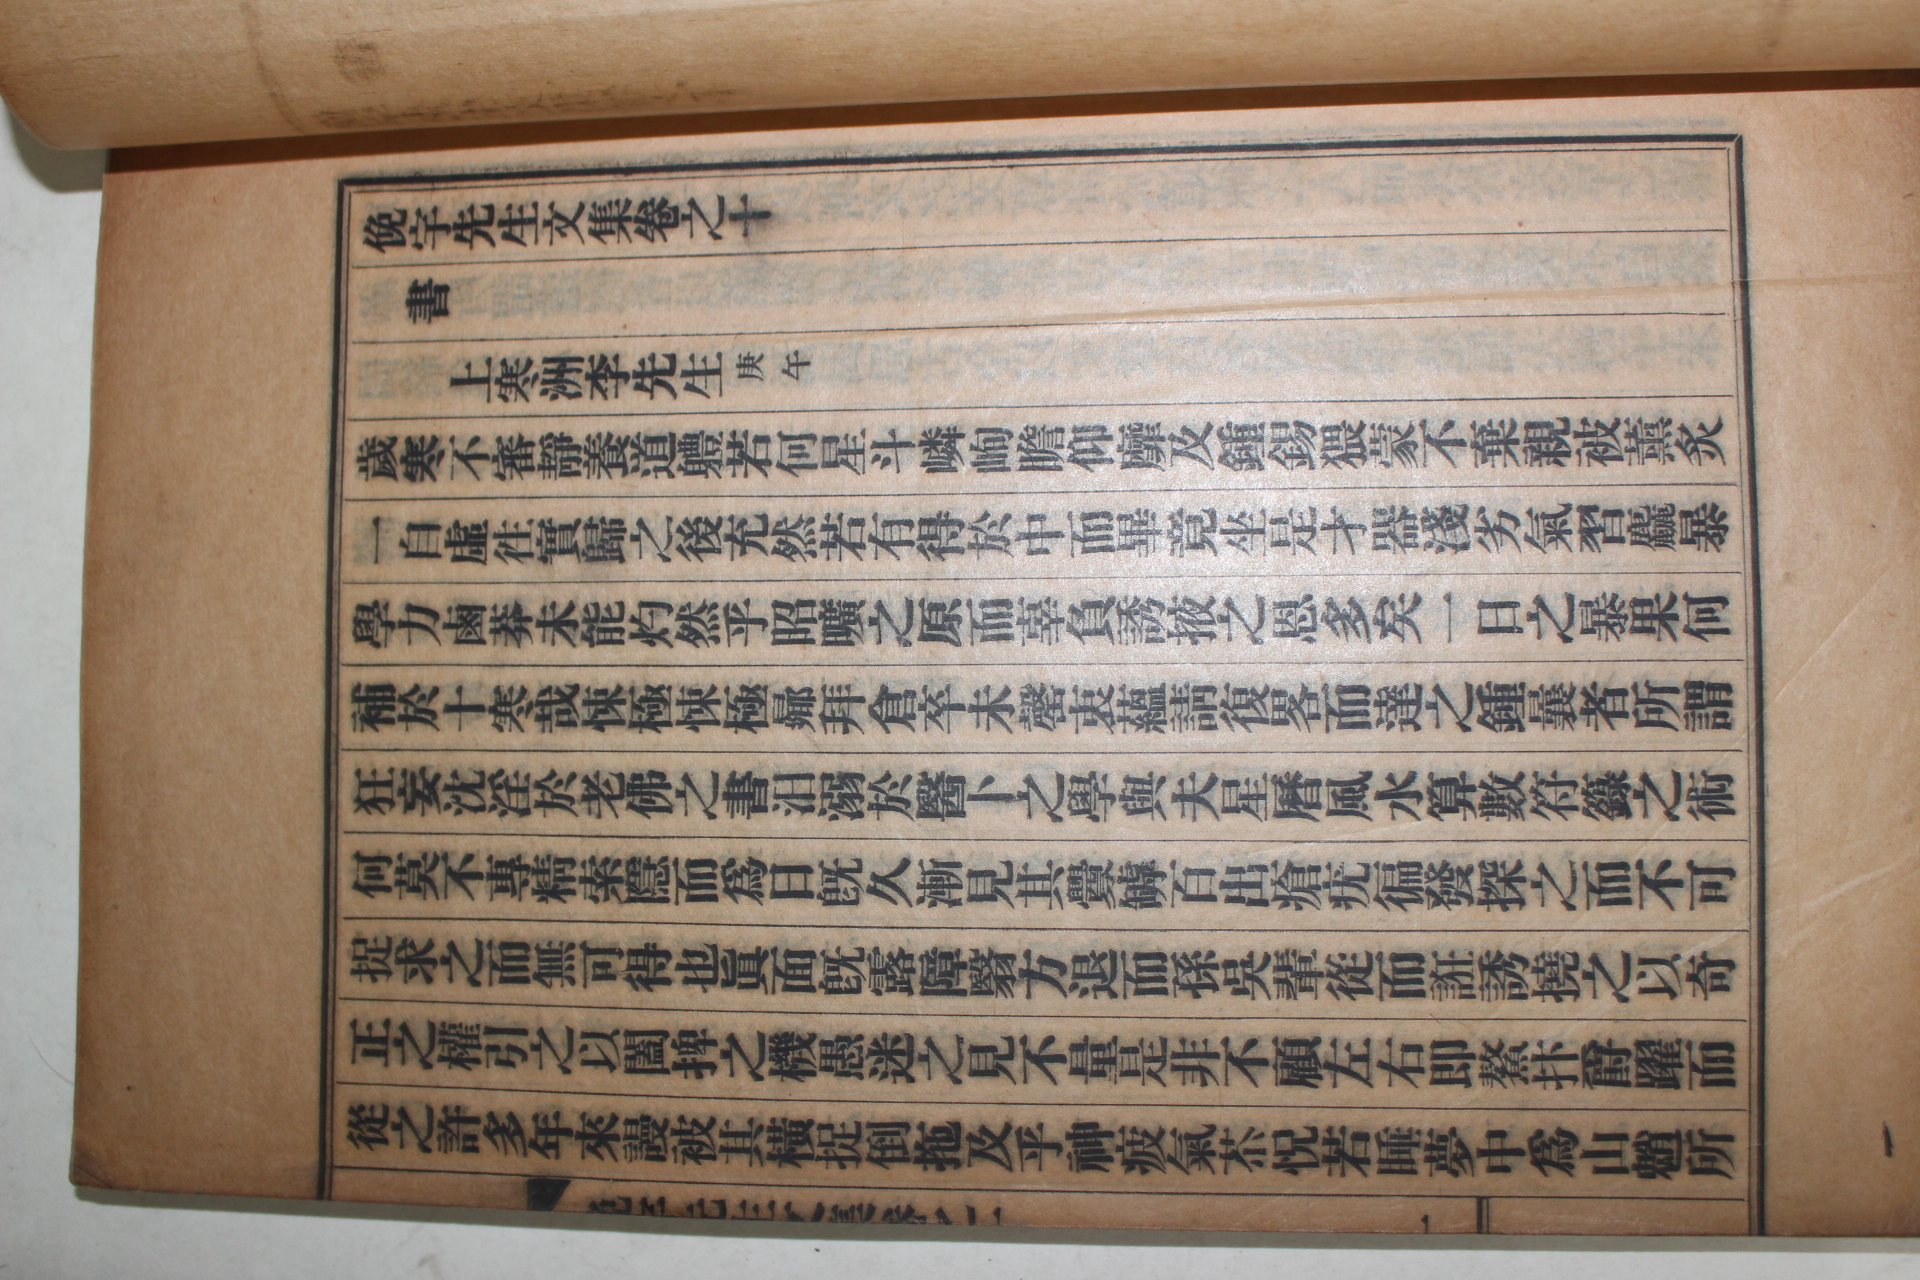 俛宇先生文集卷之十
書
上寒洲李先生 庚午
歲寒不審靜養道體若何星斗嶙峋瞻仰靡及鍾錫猥蒙不棄親被薰炙
一自虛往實歸之後充然若有得於中而畢竟坐是才器淺劣氣習麤暴
學力鹵莽未能灼然乎昭曠之原而辜負誘掖之恩多矣一日之暴果何
補於十寒哉悚極悚極歸拜倉卒未罄衷蘊請復畧而達之鍾曩者所謂
狂妄沈淫於老佛之書汨溺於醫卜之學與夫星曆風水算數符籙之術
何莫不專精索隱而爲日旣久漸見其釁罅百出瘡疣偏發探之而不可
捉求之而無可得也眞面旣露障翳方退而孫吳輩從而誑誘撓之以奇
正之權引之以闔捭之機愚迷之見不量是非不顧左右卽鰲抃奮躍而
從之許多年來謾被其橫捉倒拖及乎神疲氣苶怳若睡夢中爲山魈所